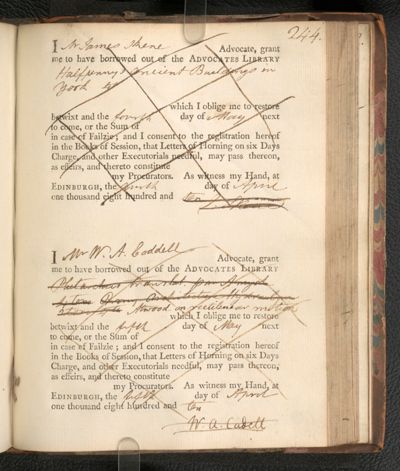 244.
I Mr James Skene Advocate, grant
me to have borrowed out of the ADVOCATES LIBRARY
Halfpenny's Ancient Buildings in
York
which I oblige me to restore
betwixt and the fourth day of May next
to come, or the Sum of
in case of Failzie; and I consent to the registration hereof
in the Books of Session, that Letters of Horning on six Days
Charge, and other Executorials needful, may pass thereon,
as effeirs, and thereto constitute
my Procurators. As witness my Hand, at
EDINBURGH, the fourth day of April
one thousand eight hundred and ten
I Mr W. A. Caddell Advocate, grant
me to have borrowed out of the ADVOCATES LIBRARY
Atwood on rectilinear motion
which I oblige me to restore
betwixt and the fifth day of May next
to come, or the Sum of
in case of Failzie; and I consent to the registration hereof
in the Books of Session, that Letters of Horning on six Days
Charge, and other Executorials needful, may pass thereon,
as effeirs, and thereto constitute
my Procurators. As witness my Hand, at
EDINBURGH, the fifth day of April
one thousand eight hundred and ten
W. A. Cadell